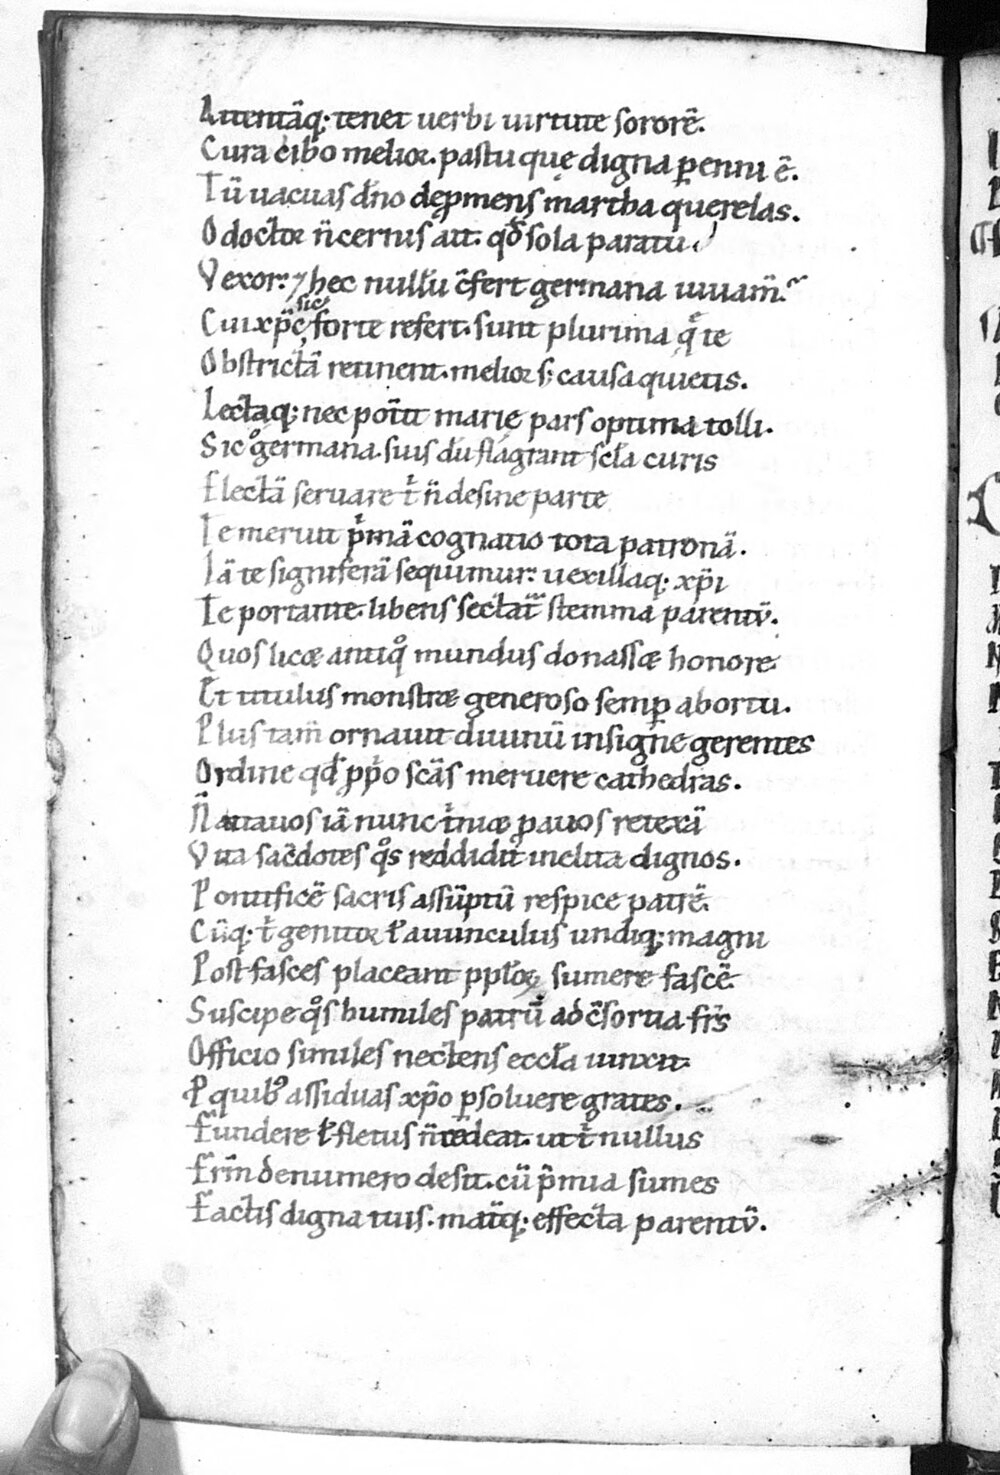 Attentaq̄; tenet uerbi uirtute sororē.
Cura cibo melior. pastu quę digna p̲enni ē.
Tū uacuas dn̄o dep̲mens martha querelas.
O doctor n̄ certus ait. qđ sola paratu
Vexor. ⁊ hec nullū c̄fert germana iuuam̄.
Cui xp̄c sic forte refert. sunt plurima q̄ te
Obstrictā retinent. melior s; causa quietis.
Lectaq; nec potit marię pars optima tolli.
Sic g̊ germana suis dū flagrant scl̄a curis
Electā seruare t̄ n̄ desine parte
Te meruit p̄mā cognatio tota patronā.
Iā te signiferā sequimur. uexillaq; xp̄i
Te portante. libens sectat̄ stemma parentū.
Quos licæ antiq̊ mundus donassæ honore
Et titulus monstræ generoso semp̲ ab ortu.
Plus tam̄ ornauit diuinū insigne gerentes
Ordine qđ pp̄o scās meruere cathedras.
N̄ attauos iā nunc p̲auos retexā
Vita sac̄dotes q̊s reddidit inclita dignos.
Pontificē sacris assūptū respice patrē.
Cūq; t̄ genitor ł auunculus undiq; magni
Post fasces placeant pplo̅ꝝ sumere fascē
Suscipe q̊s humiles patrū ad c̄sortia fr̄s
Officio similes nectens eccła uinxit.
P̲ quib; assiduas xp̄o p̲soluere grates.
Fundere ł fletus n̄ tedeat. ut t̄ nullus
Er̄in de numero desit. cū p̄mia sumes
Factis digna tuis. mat̄q; effecta parentū.